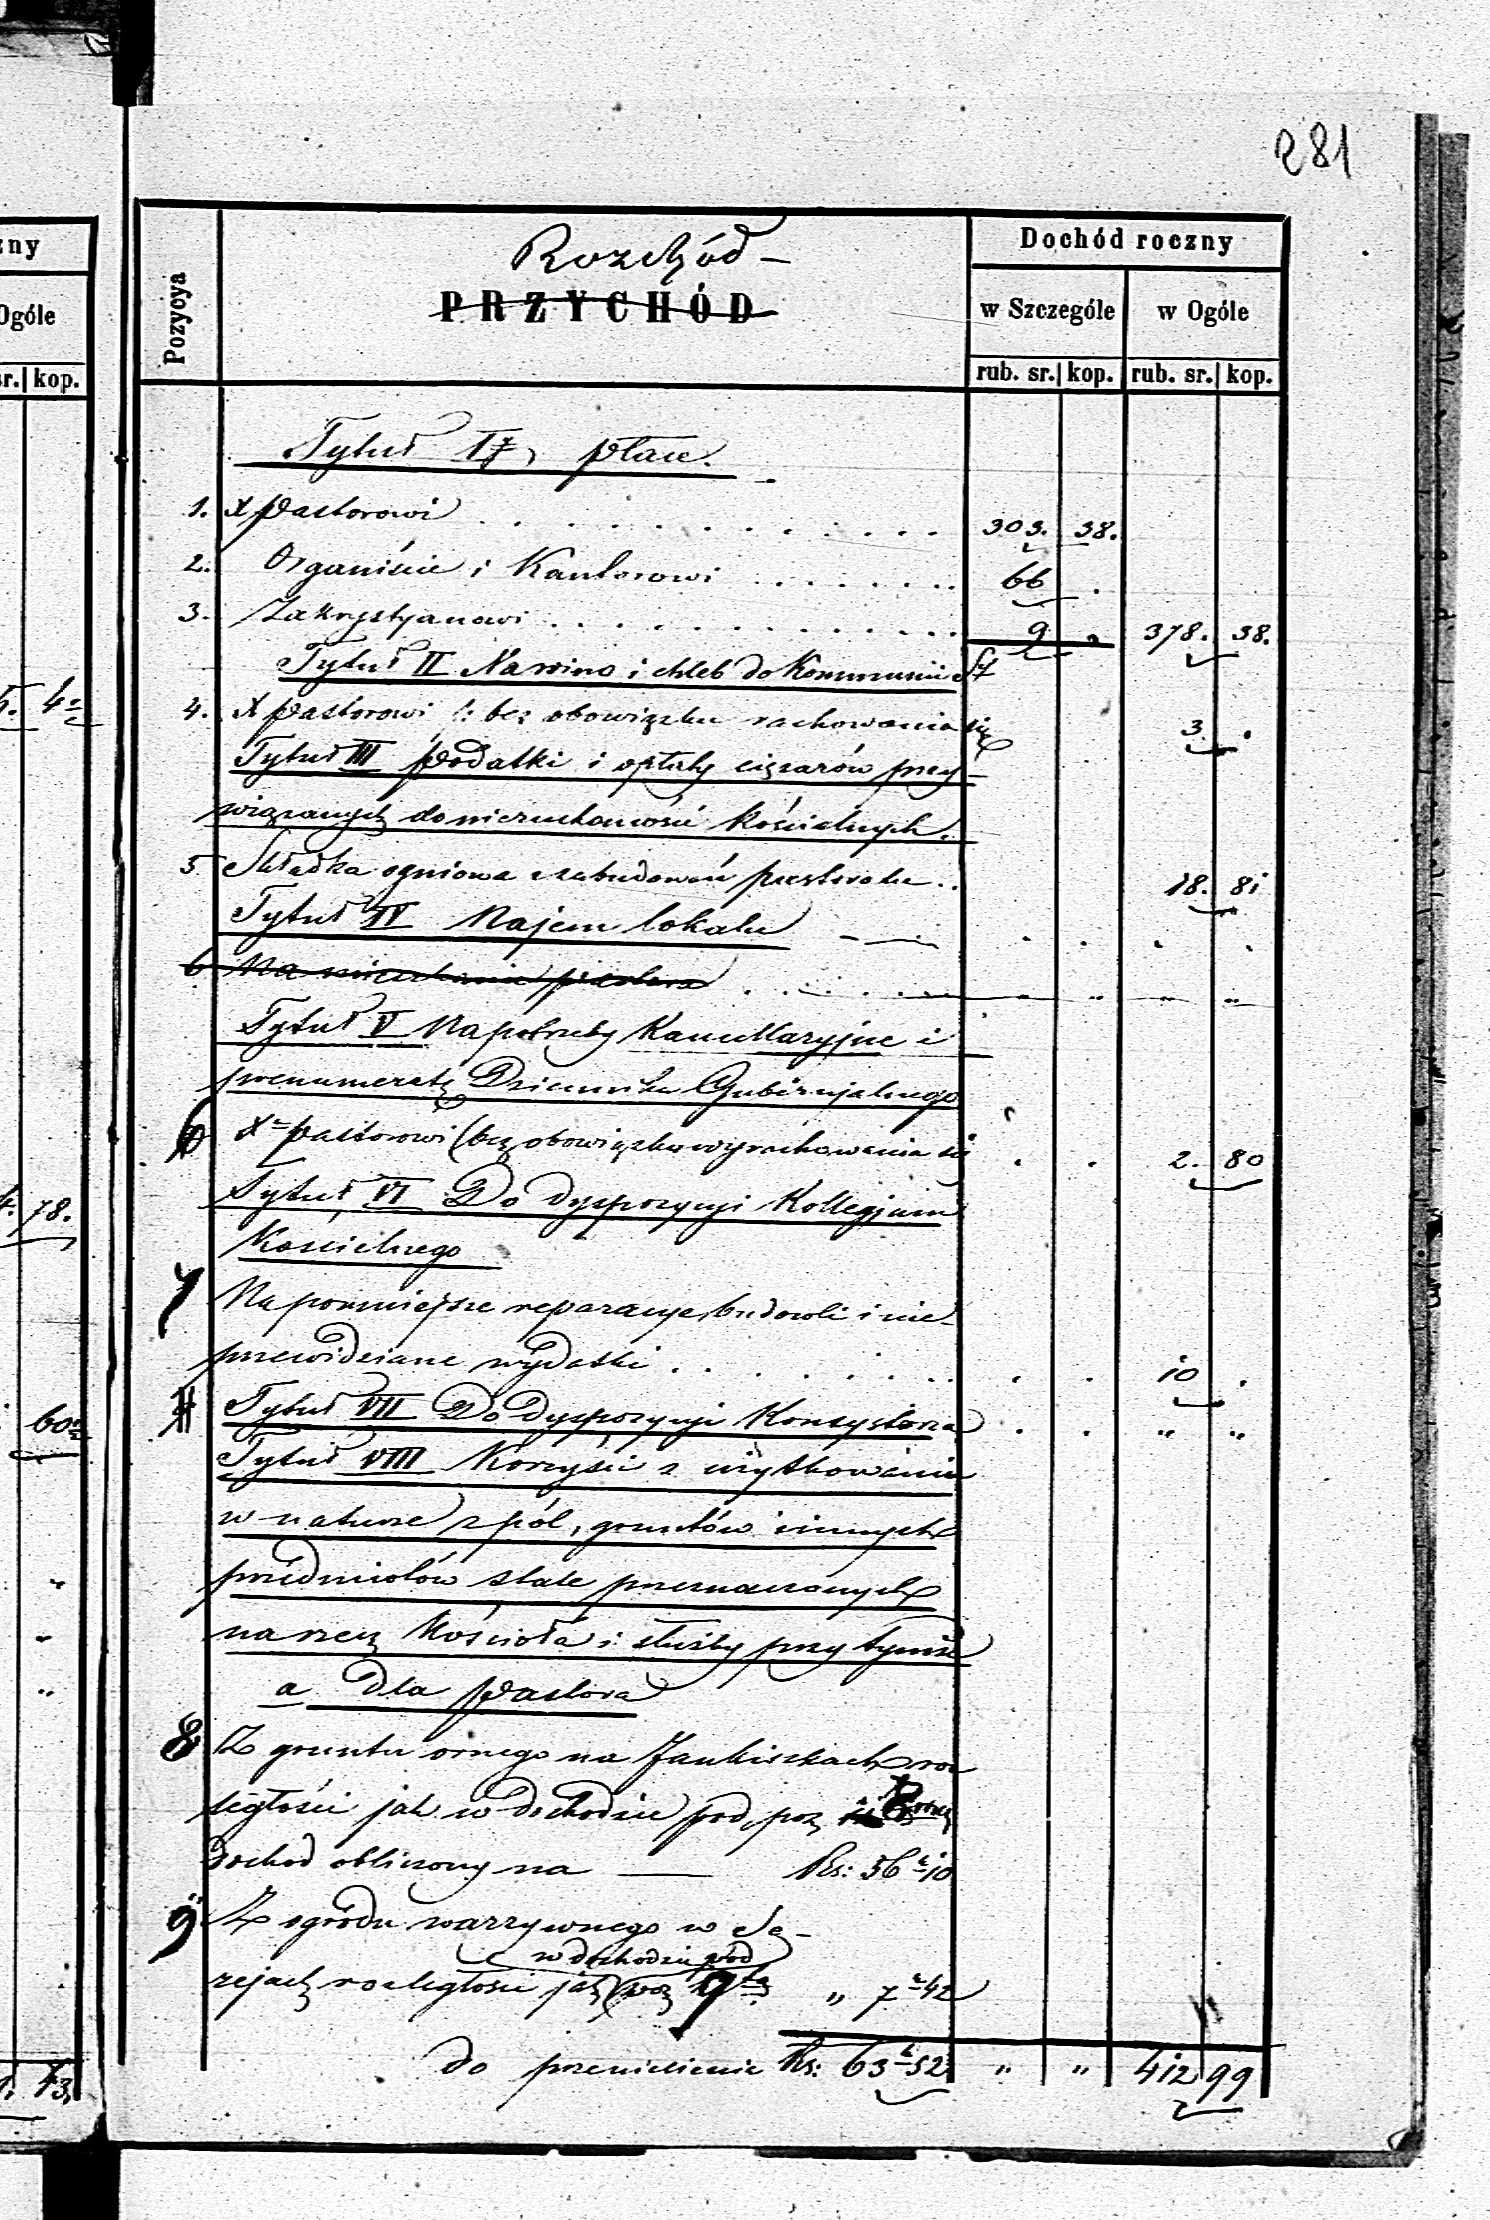 281
zny
Ogóle
sr. kop.
4
78.
60
73.
Rozchód –
PRZYCHÓD
Pozycya
Dochód roczny
w Szczególe
w Ogóle
rub. sr. kop. rub. sr. kop.
Tytuł I, płace.
1. X Pastorowi . . . . . . . . . . . . 303. 38.
2. Organiście i Kantorowi . . . . . . . 66 .
3. Zakrystyanowi . . . . . . . . . . . . 9 „ 378. 38.
Tytuł II Na wino i chleb do Kommunii St
4. X Pastorowi /: bez obowiązku rachowania się 3. .
Tytuł III Podatki i opłaty ciężarów przy-
wiązanych do nieruchomości Kościelnych.
5. Składka ogniowa z zabudowań pastoratu . . 18. 81
Tytuł IV Najem lokalu
6 Na mieszkanie pastora . . . . . „ „ „
Tytuł V Na potrzeby Kancellaryjne i
prenumeratę Dziennika Gubernjalnego
6 X Pastorowi (bez obowiązku wyrachowania się . . 2. 80
Tytuł VI Do dyspozycyi Kollegjum
Kościelnego
7 Na pomniejsze reparacye, budowli i nie-
przewidziane wydatki . . . . . . . . . 10 .
Tytuł VII Do Dyspozycyi Konsystorza . . „ „
Tytuł VIII Korzyści z użytkowania
w naturze z pól, gruntów i innych
przedmiotów stale przeznaczonych
na rzecz Kościoła i służby przy tymże
a Dla Pastora
8 Z gruntu ornego na Jankiszkach roz
ległości jak w dochodzie pod poz 8
dochód obliczony na — Rs: 56 k 10
9 Z ogrodu warzywnego w Se-
w dochodzie pod
rejach rozległości jak poz 9 „ 7 k 42
do przeniesienia Rs: 63 k 52 „ „ 412 99